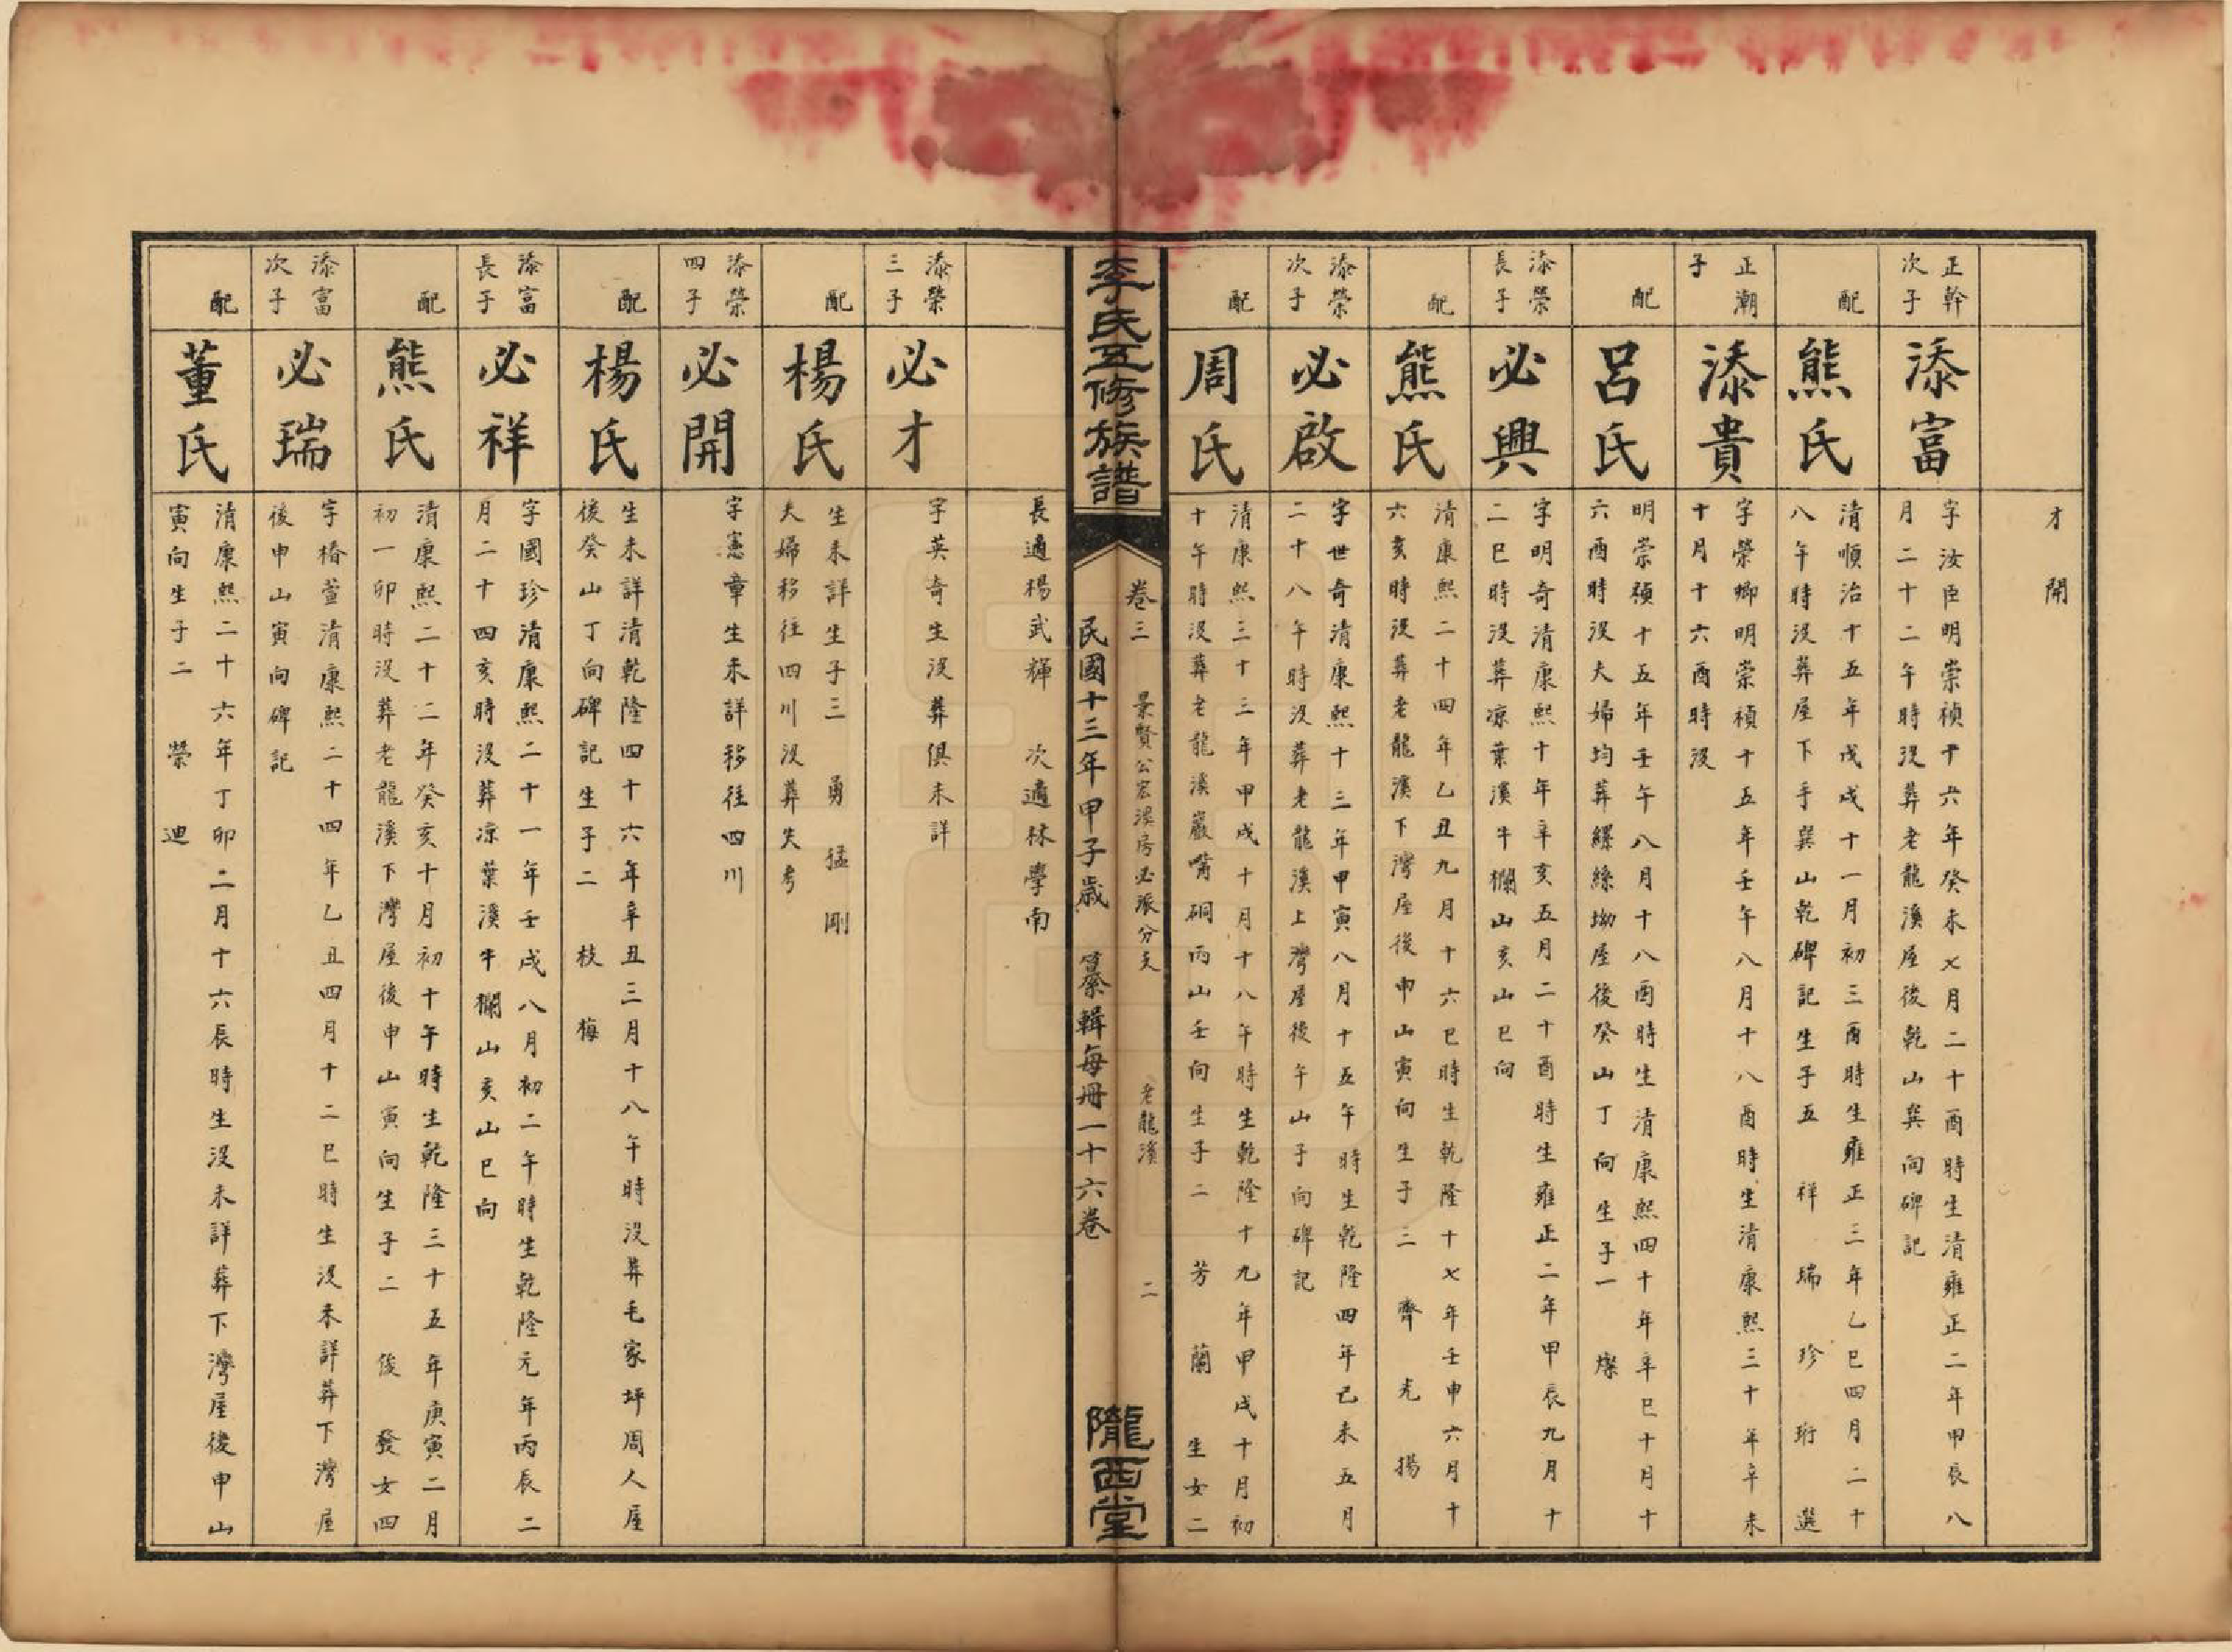 才　開
正幹次子
添富
字汝臣明崇禎十六年癸未七月二十酉時生清雍正二年甲辰八
月二十二午時沒葬老龍溪屋後乾山巽向碑記
配
熊氏
清順治十五年戊戌十一月初三酉時生雍正三年乙巳四月二十
八午時沒葬屋下手巽山乾碑記生子五　祥　瑞　珍　珩　選
正潮子
添貴
字榮卿明崇禎十五年壬午八月十八酉時生清康熙三十年辛未
十月十六酉時沒
配
呂氏
明崇禎十五年壬午八月十八酉時生清康熙四十年辛巳十月十
六酉時沒夫婦均葬繅絲坳屋後癸山丁向生子一　燦
添榮長子
必興
字明奇清康熙十年辛亥五月二十酉時生雍正二年甲辰九月十
二巳時沒葬凉葉溪牛欄山亥山巳向
配
熊氏
清康熙二十四年乙丑九月十六巳時生乾隆十七年壬申六月十
六亥時沒葬老龍溪下灣屋後申山寅向生子三　齊　光　揚
添榮次子
必啟
字世奇清康熙十三年甲寅八月十五午時生乾隆四年己未五月
二十八午時沒葬老龍溪上灣屋後午山子向碑記
配
周氏
清康熙三十三年甲戌十月十八午時生乾隆十九年甲戌十月初
十午時沒葬老龍溪巖嘴硐丙山壬向生子二　芳　蘭　生女二
李氏互修族譜
卷三　景賢公宏　房必派分支　老龍溪　二
民國十三年甲子歲　纂輯每冊一十六卷
隴西堂
長適楊武輝　次適林學南
添榮三子
必才
字英奇生沒葬俱未詳
配
楊氏
生未詳生子三　勇　猛　剛
夫婦移往四川沒葬失考
添榮四子
必開
字憲章生未詳移往四川
配
楊氏
生未詳清乾隆四十六年辛丑三月十八午時沒葬毛家坪周人屋
後癸山丁向碑記生子二　枝　梅
添富長子
必祥
字國珍清康熙二十一年壬戌八月初二午時生乾隆元年丙辰二
月二十四亥時沒葬凉葉溪牛欄山亥山巳向
配
熊氏
清康熙二十二年癸亥十月初十午時生乾隆三十五年庚寅二月
初一卯時沒葬老龍溪下灣屋後申山寅向生子二　後　發女四
添富次子
必瑞
字椿萱清康熙二十四年乙丑四月十二巳時生沒未詳葬下灣屋
後申山寅向碑記
配
董氏
清康熙二十六年丁卯二月十六辰時生沒未詳葬下灣屋後申山
寅向生子二　榮　迎